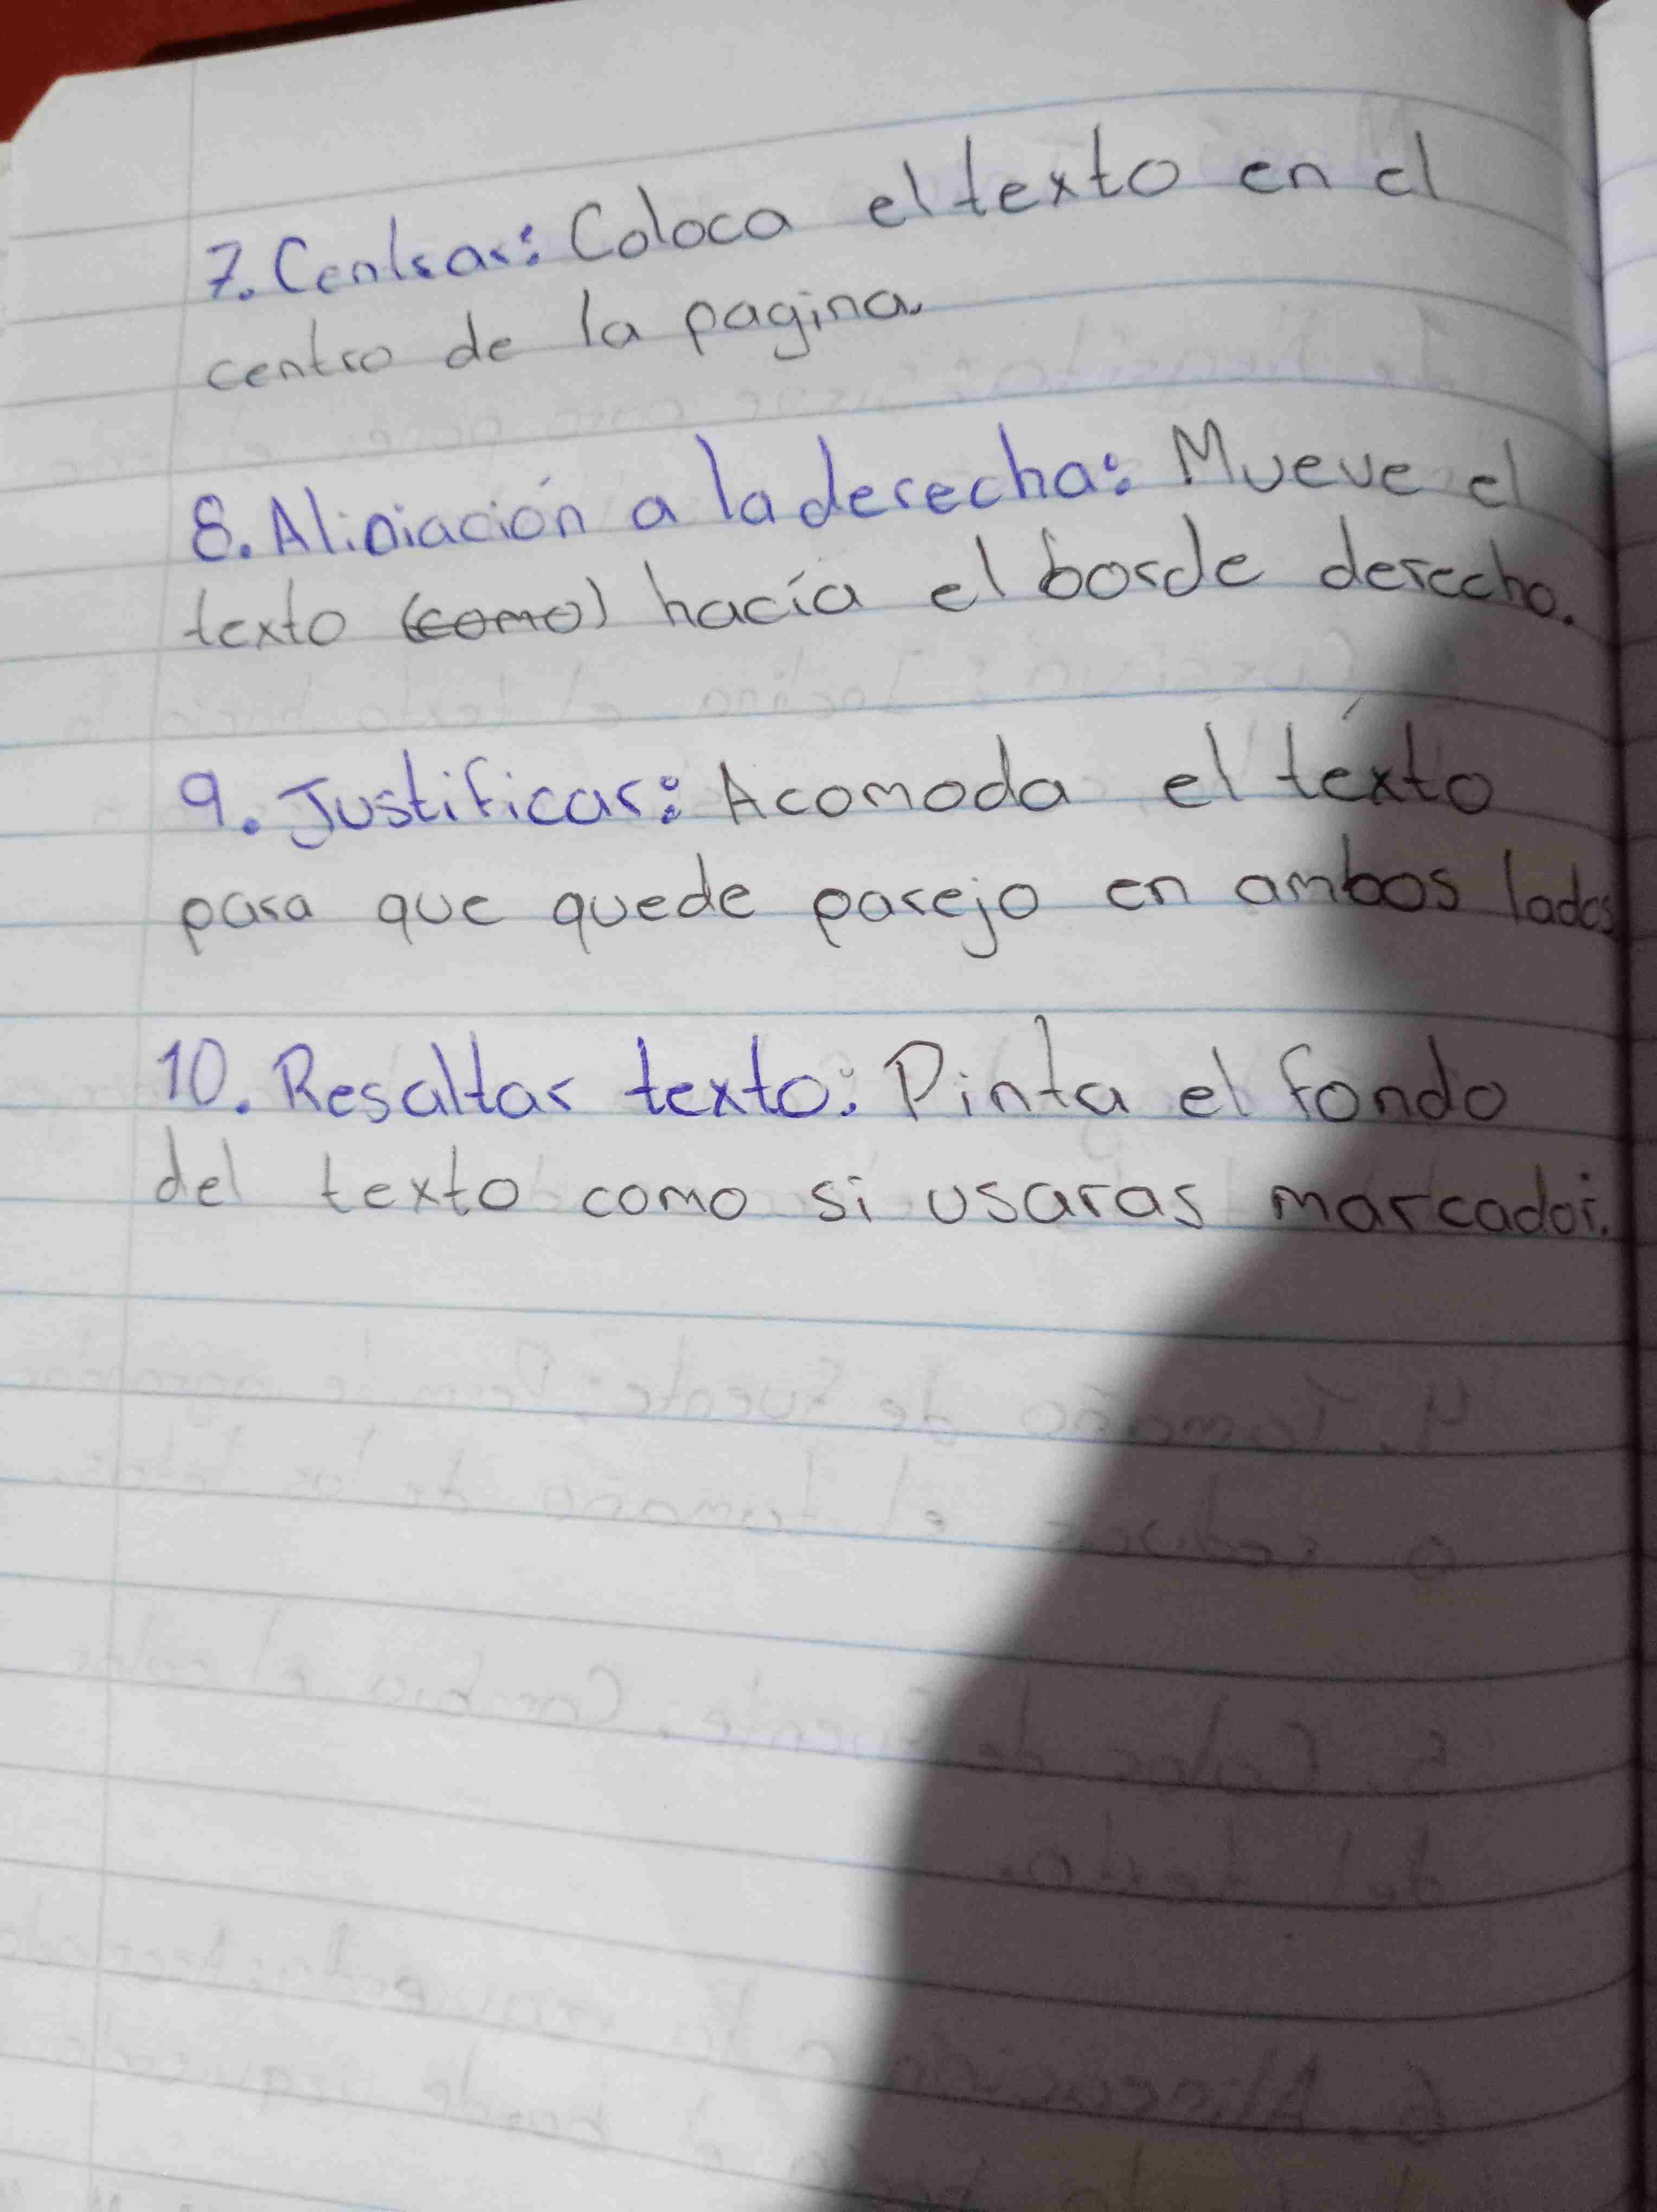 7. Centrar: Coloca el texto en el
centro de la pagina
8. Aliniación a la derecha: Mueve el
texto (como) hacía el borde derecho.
9. Justificar: Acomoda el téxto
para que quede parejo en ambos lados
10. Resaltar texto: Pinta el fondo
del texto como si usaras marcador.